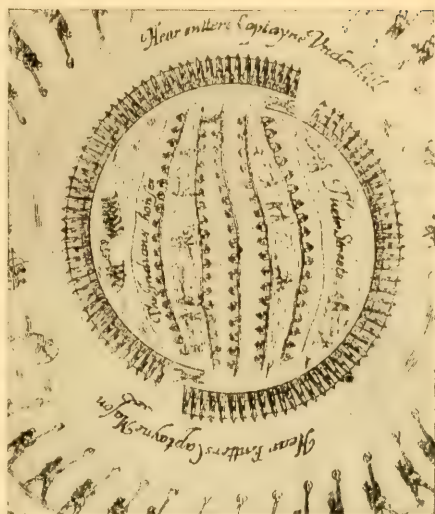 Hear entters Captayne Vnderhill
Indians houses
Streets
Hear Entters Captayne Mason